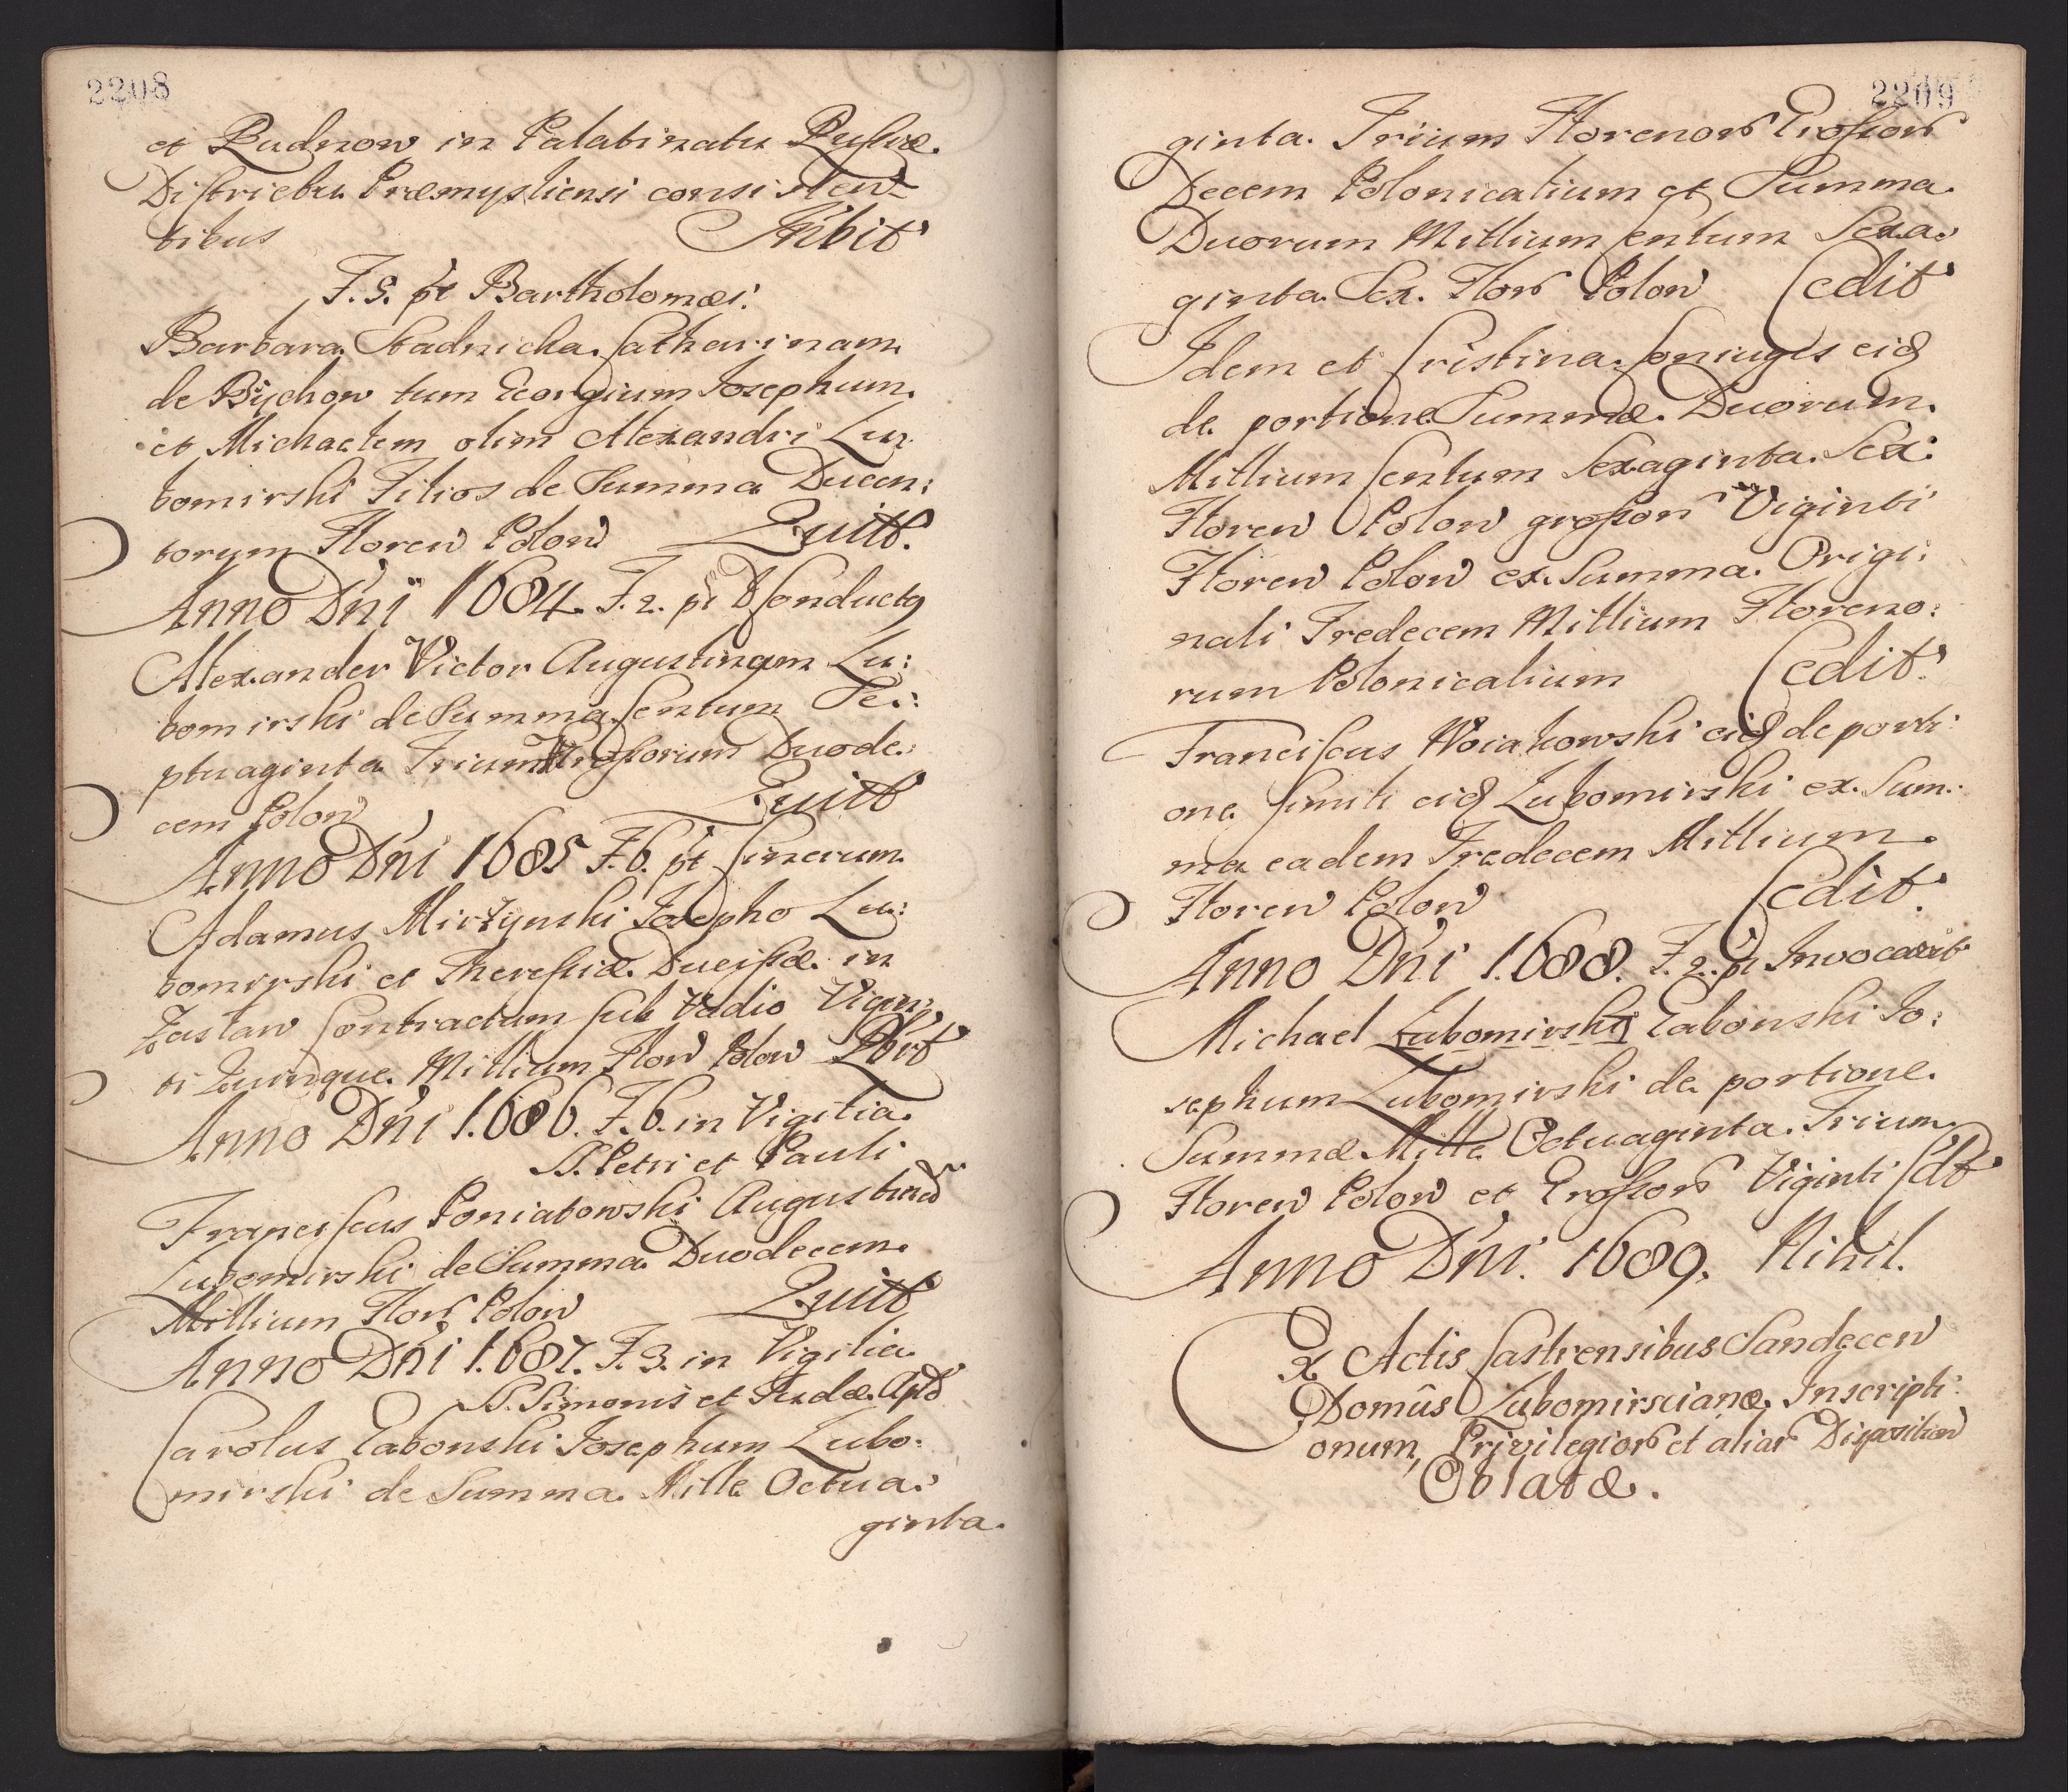 2208
et Rudnow in Palatinatu Russiæ.
Districtu Præmysliensi consisten=
tibus Inbit
F. 5. pt Bartholomæi.
Barbara Stadnicka Catharinam
de Bychow tum Georgium Josephum
et Michaelem olim Alexandri Lu:
bomirski Filios de Summa Ducen:
torum Floren Polon Quitt.
Anno Dni 1684. F. 2. pt Conductq
Alexander Victor Augustinum Lu:
bomirski de Summa Centum Se:
ptuaginta Trium Grossorum Duode:
cem Polon Quitt
Anno Dni 1685 F. 6. pt Cinerum
Adamus Mirzynski Josepho Lu:
bomirski et Theressiæ Ducissæ in
Zaslaw Contractum sub Vadio Vigin:
ti Quinque Millium Flor Polon
Anno Dni 1.686. F. 6. in Vigilia
S. Petri et Pauli
Franciscus Poniatowski Augustinū
Lubomirski de Summa Duodecem
Millium Flor Polon Quitt
Anno Dni 1.687. F. 3. in Vigilia
S. Simonis et Judæ. Aplō
Carolus Gabonski Josephum Lubo:
mirski de Summa Mille Octua:
ginta.
2209
ginta Trium Florenor Grossor
Decem Polonicalium et Summa
Duorum Millium Centum Sexa:
ginta Sex. Flor Polon Cedit
Idem et Cristina Coniuges eid
de portione Summæ Duorum
Millium Centum Sexaginta Sex:
Floren Polon grossor Viginti
Floren Polon ex Summa Origi:
nali Tredecem Millium Floreno:
rum Polonicalium Cedit.
Franciscus Woiakowski eid de porti:
one simili eid Lubomirski ex Sum:
ma eadem Tredecem Millium
Floren Polon Cedit.
Anno Dni 1.688. F. 2. pt Invocavit
Michael Lubomirski Gabonski Jo:
sephum Lubomirski de portione
Summæ Mille Octuaginta Trium
Floren Polon et Grossor Viginti Cdt
Anno Dni. 1689. Nihil.
Ex Actis Castrensibus Sandecen
Domûs Lubomirscianæ Inscripti:
onum, Privilegior et aliar Disposition
Oblatæ.